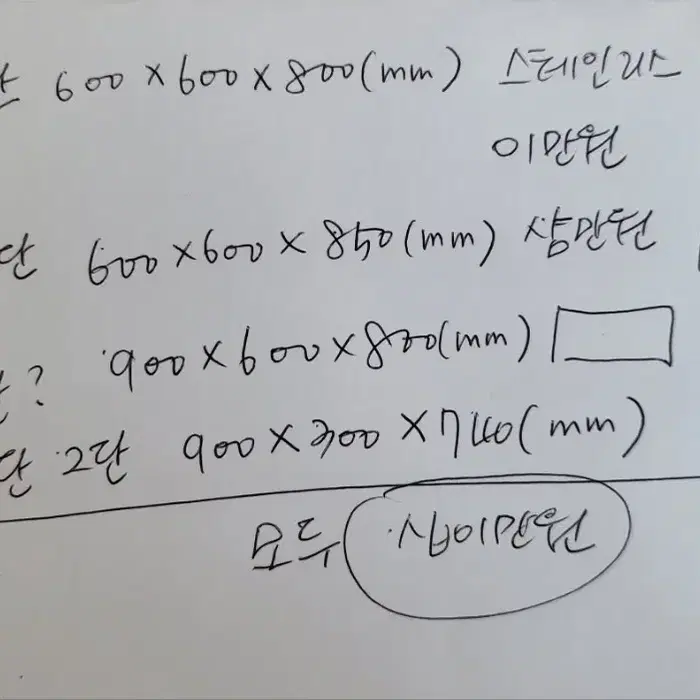 단 600 × 600 × 800 (mm) 스테인리스
이만원
단 600 × 600 × 850 (mm) 삼만원
? 900 × 600 × 800 (mm)
단 2단 900 × 300 × 740 (mm)
모두 십이만원